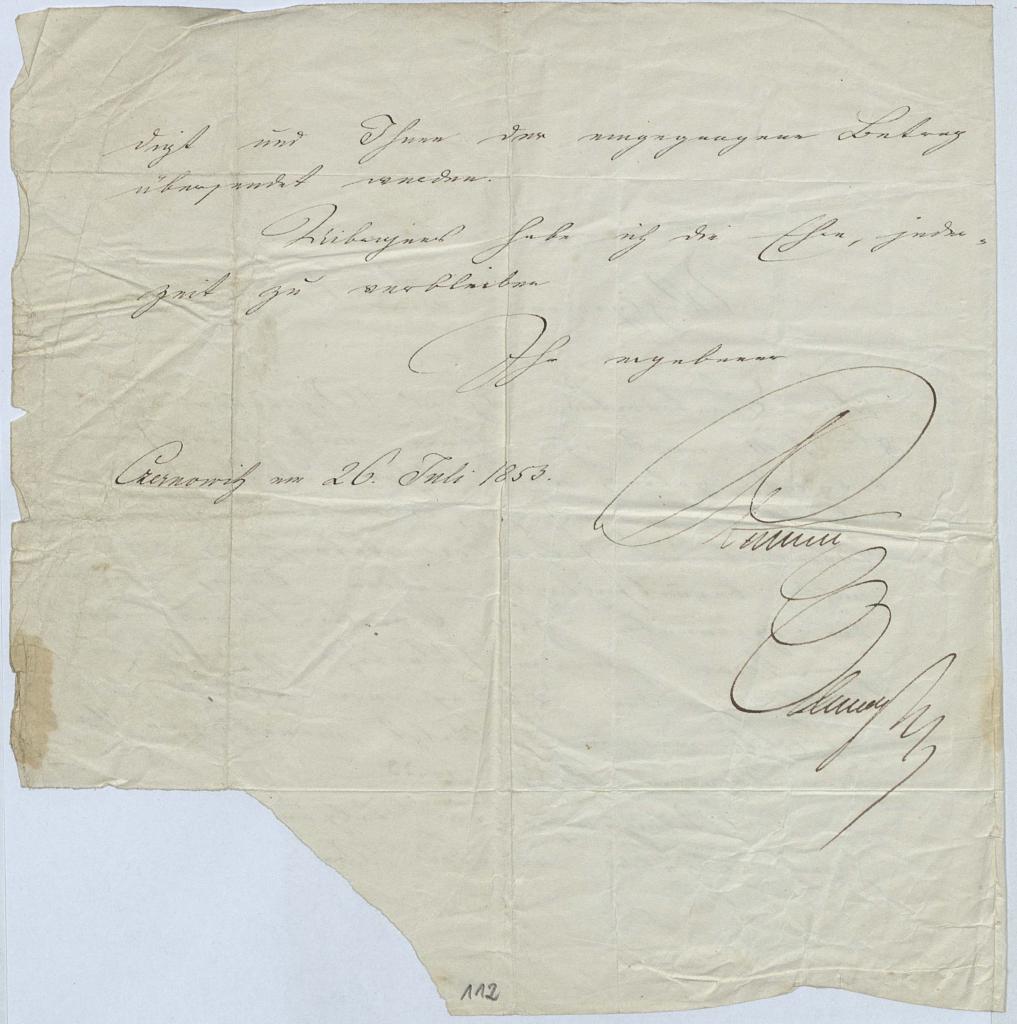 digt und Ihnen der eingegangene Betrag
übersendet werden.
Uibrigens habe ich die Ehre, jeder-
zeit zu verbleiben
Ihr ergebener
Czernowitz am 26. Juli 1853.
112